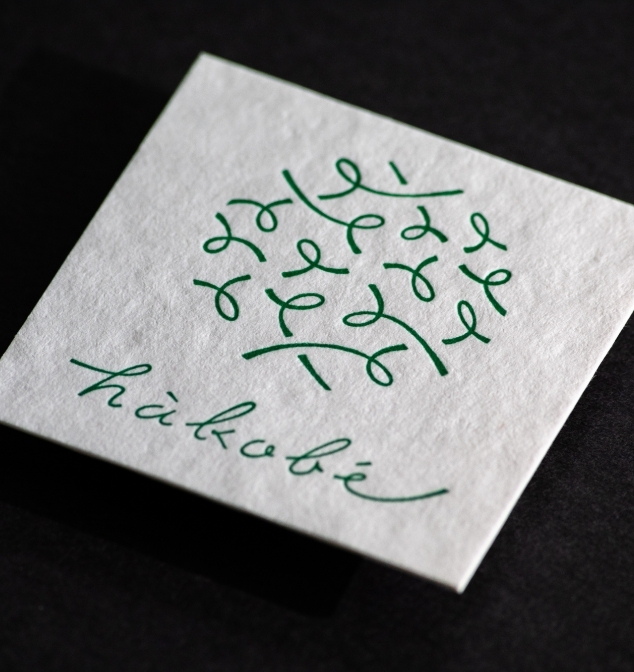 hàkobé